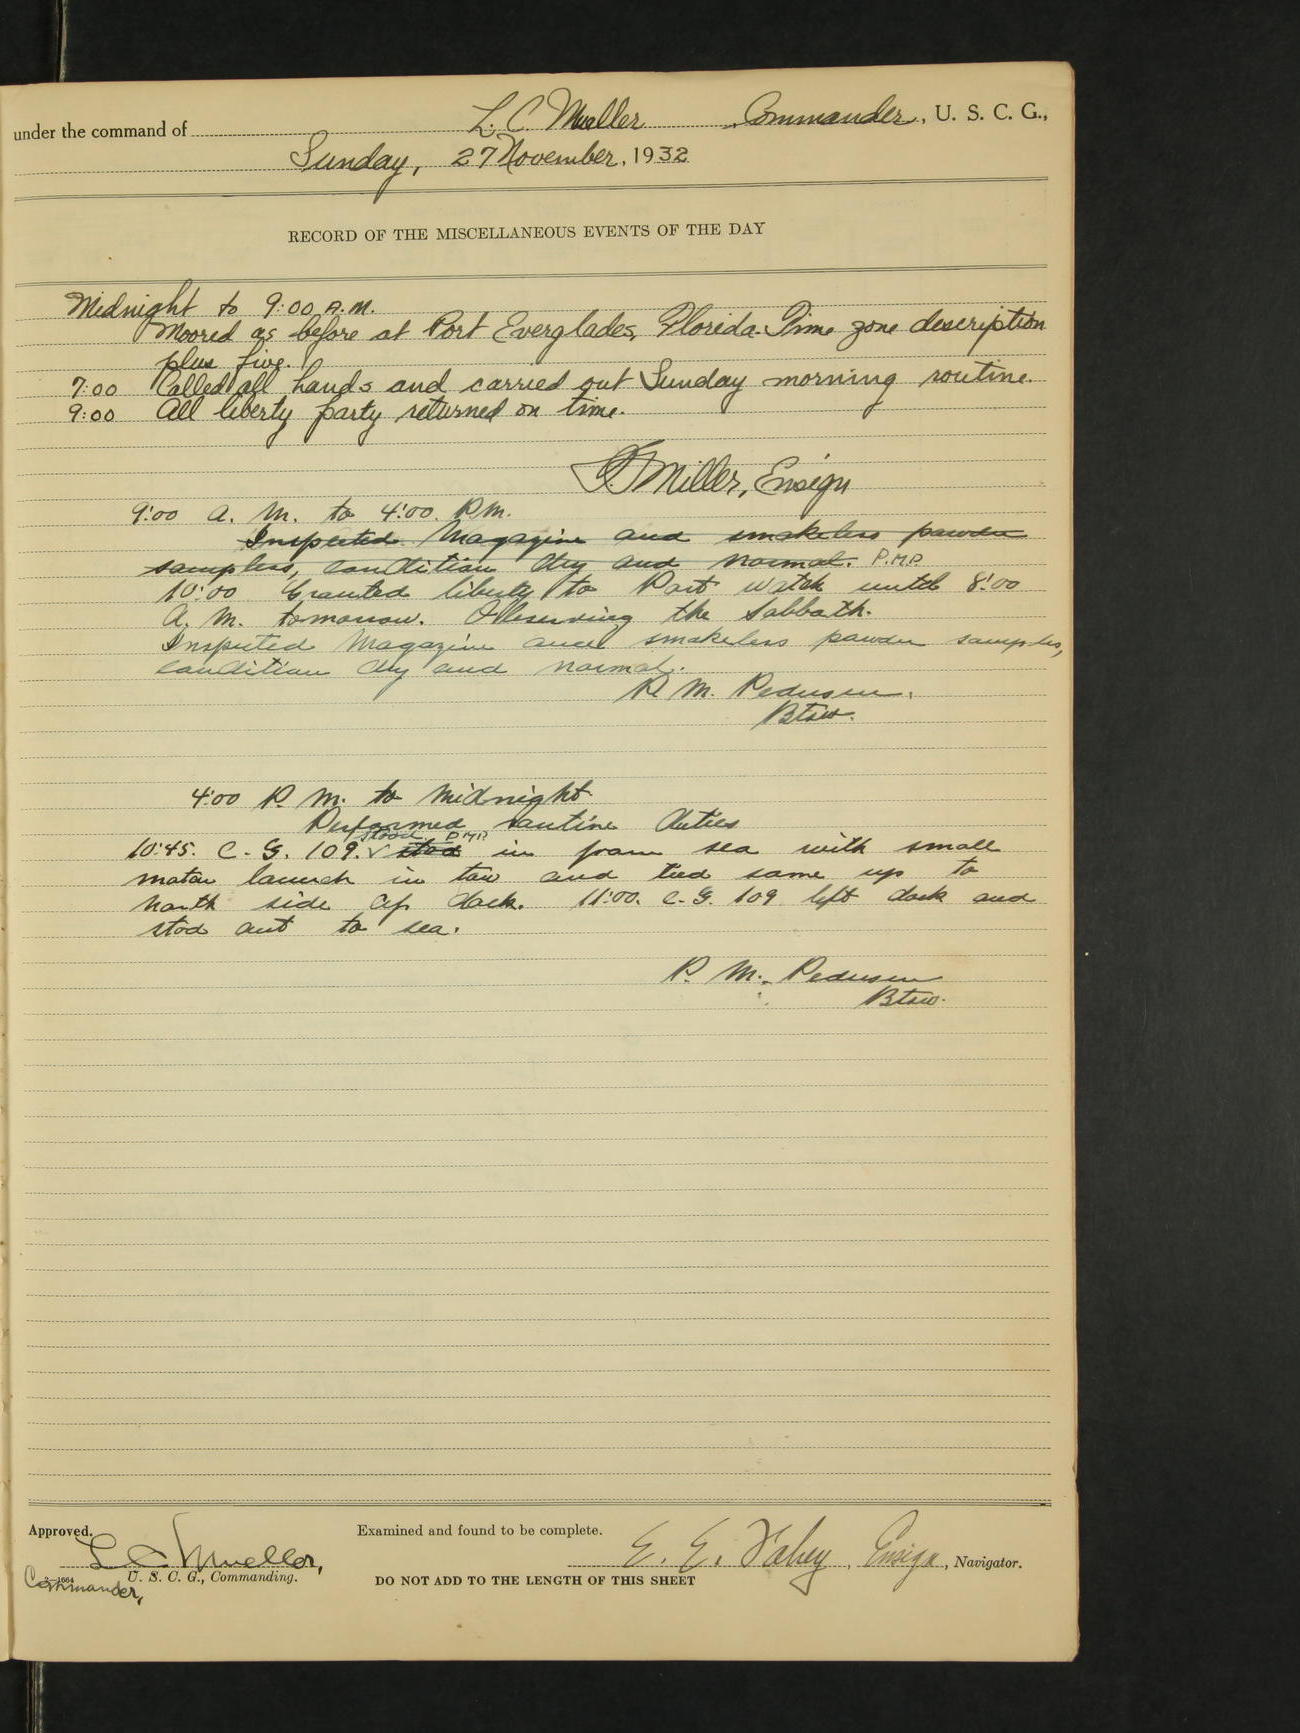 under the command of L. C. Mueller, Commander, U. S. C. G.,
Sunday, 27 November, 1932
RECORD OF THE MISCELLANEOUS EVENTS OF THE DAY
Midnight to 9:00 A.M.
Moored as before at Port Everglades, Florida. Time zone description
plus five.
7:00 Called all hands and carried out Sunday morning routine.
9:00 All liberty party returned on time.
Miller, Ensign
9:00 A. M. to 4:00 P.M.
Inspected Magazine and smokeless powder
samples, condition dry and normal. P.M.P.
10:00 Granted liberty to Port watch until 8:00
A. M. tomorrow. Observing the Sabbath.
Inspected Magazine and smokeless powder samples,
condition dry and normal.
P. M. Pedersen.
Btsw.
4:00 P. M. to Midnight
Performed routine duties
stood P.M.P.
10:45. C. G. 109. stod in from sea with small
motor launch in tow and tied same up to
north side of dock. 11:00. C. G. 109 left dock and
stod out to sea.
P. M. Pedersen
Btsw.
Approved. Examined and found to be complete.
L C Mueller, E. E. Fahey, Ensign, Navigator.
Commander, U. S. C. G., Commanding. DO NOT ADD TO THE LENGTH OF THIS SHEET